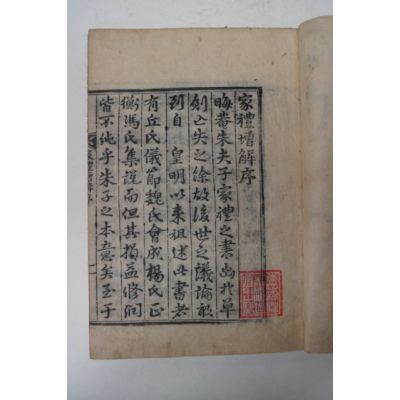 家禮增解序
晦菴朱夫子家禮之書出於草
創亡失之餘故後世之議論歧
到自 皇明以來祖述此書者
有丘氏儀節魏氏會成楊氏正
衡馮氏集說而但其損益修潤
皆不純乎朱子之本意矣至于
家禮增解序